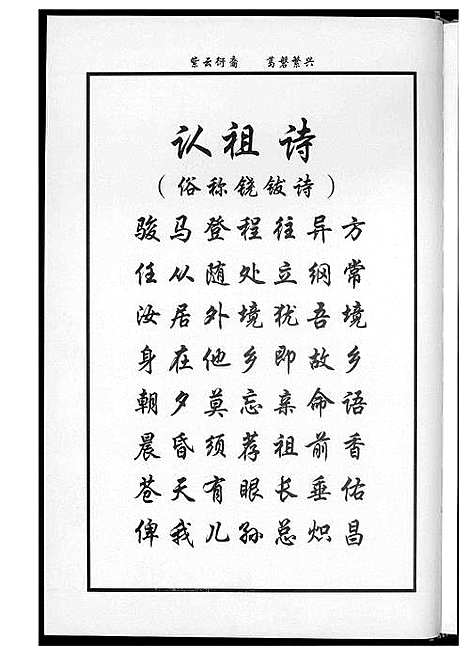 紫云衍裔 葛磐繁兴
认祖诗
(俗称铙钹诗)
骏马登程往异方
任从随处立纲常
汝居外境犹吾境
身在他乡即故乡
朝夕莫忘亲命语
晨昏须荐祖前香
苍天有眼长垂佑
俾我儿孙总炽昌